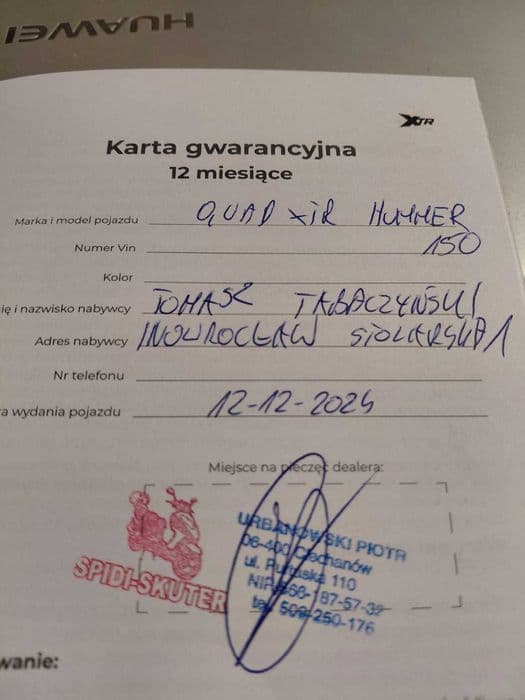 HUAWEI
XTR
Karta gwarancyjna
12 miesiące
Marka i model pojazdu QUAD XTR HUMMER
Numer Vin 150
Kolor
ię i nazwisko nabywcy TOMASZ TABACZYŃSKI
Adres nabywcy INOWROCŁAW STOLARSKA 1
Nr telefonu
ta wydania pojazdu 12-12-2024
Miejsce na pieczęć dealera:
SPIDI-SKUTER
URBANOWSKI PIOTR
06-400 Ciechanów
ul. Pułtuska 110
NIP 566-187-57-32
tel. 509-250-176
wanie: